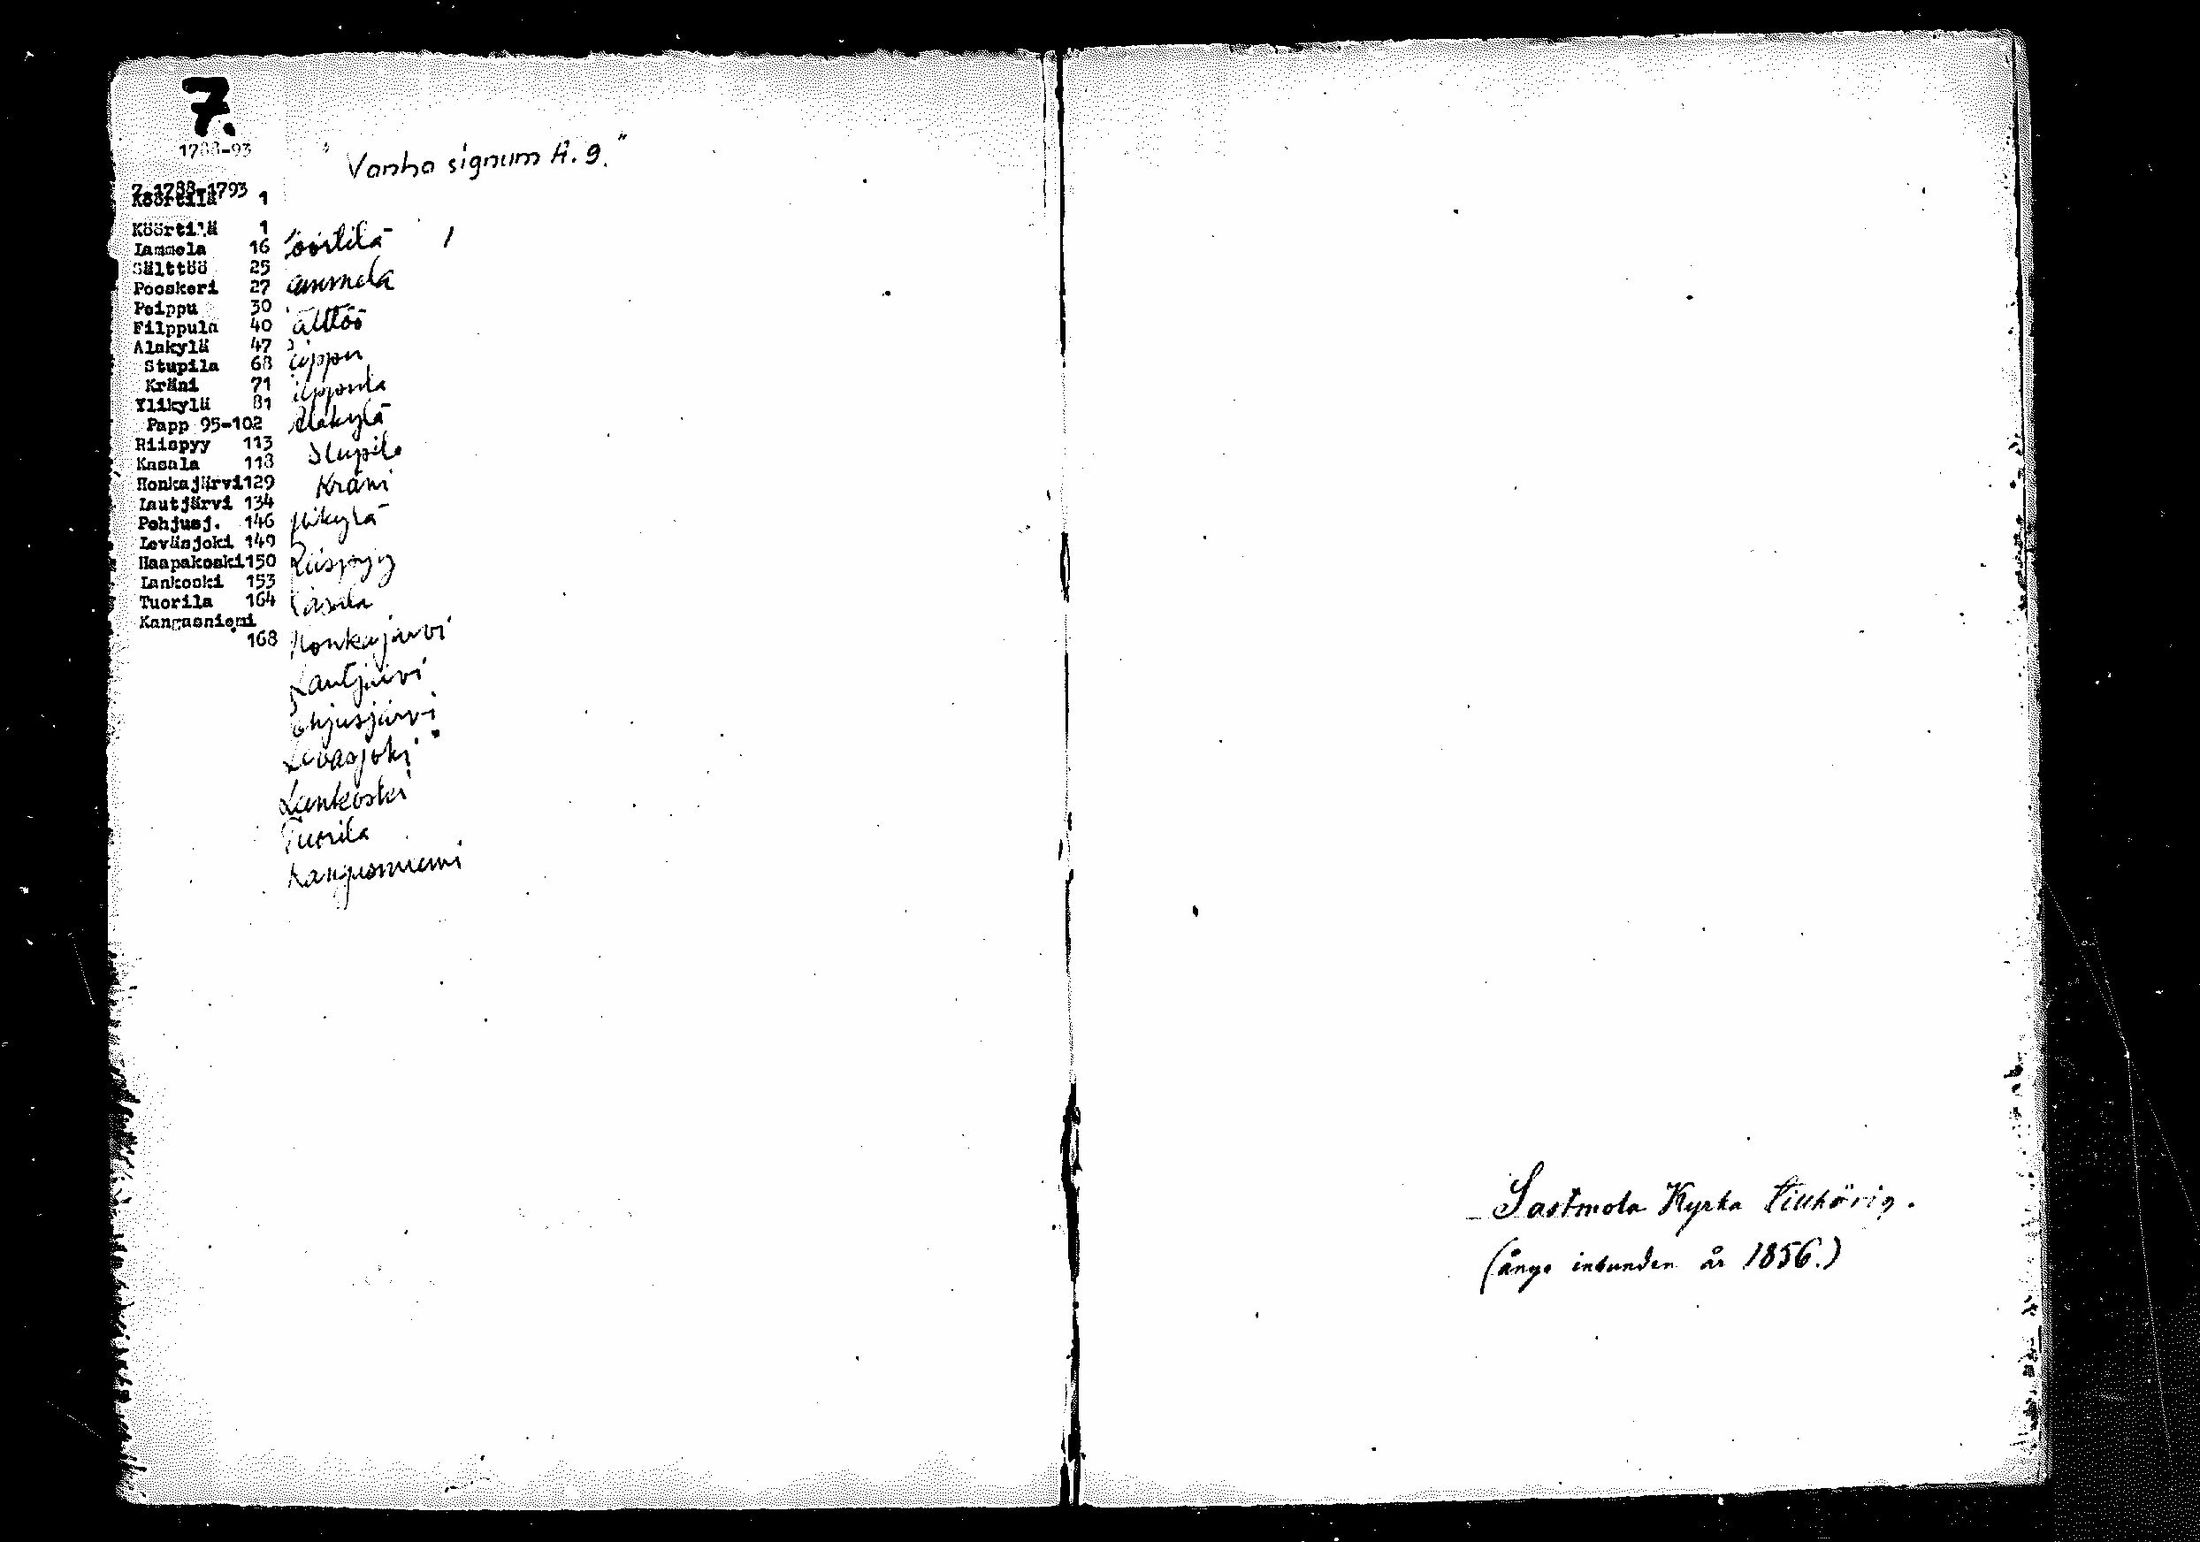 7.
1788-93
"Vanha signum A. 9."
7 1788-1793
Köörtilä 1
Köörtilä 1
Lammela 16
Sälttöö 25
Pooskeri 27
Peippu 30
Filppula 40
Alakylä 47
Stupila 68
Kräni 71
Ylikylä 81
Papp 95-102
Riispyy 113
Kasala 118
Honkajärvi 129
Lautjärvi 134
Pohjusj. 146
Leväsjoki 149
Haapakoski 150
Lankoski 153
Tuorila 164
Kangasniemi
168
öörtilä 1
ammela
älttöö
eippu
ilppula
Alakylä
Stupila
Kräni
Ylikylä
Riispyy
Kasala
Honkajärvi
Lautjärvi
ohjusjärvi
Leväsjoki
Lankoski
Tuorila
Kangasniemi
Sastmola Kyrka tillhörig.
(ånyo inbunden år 1856.)